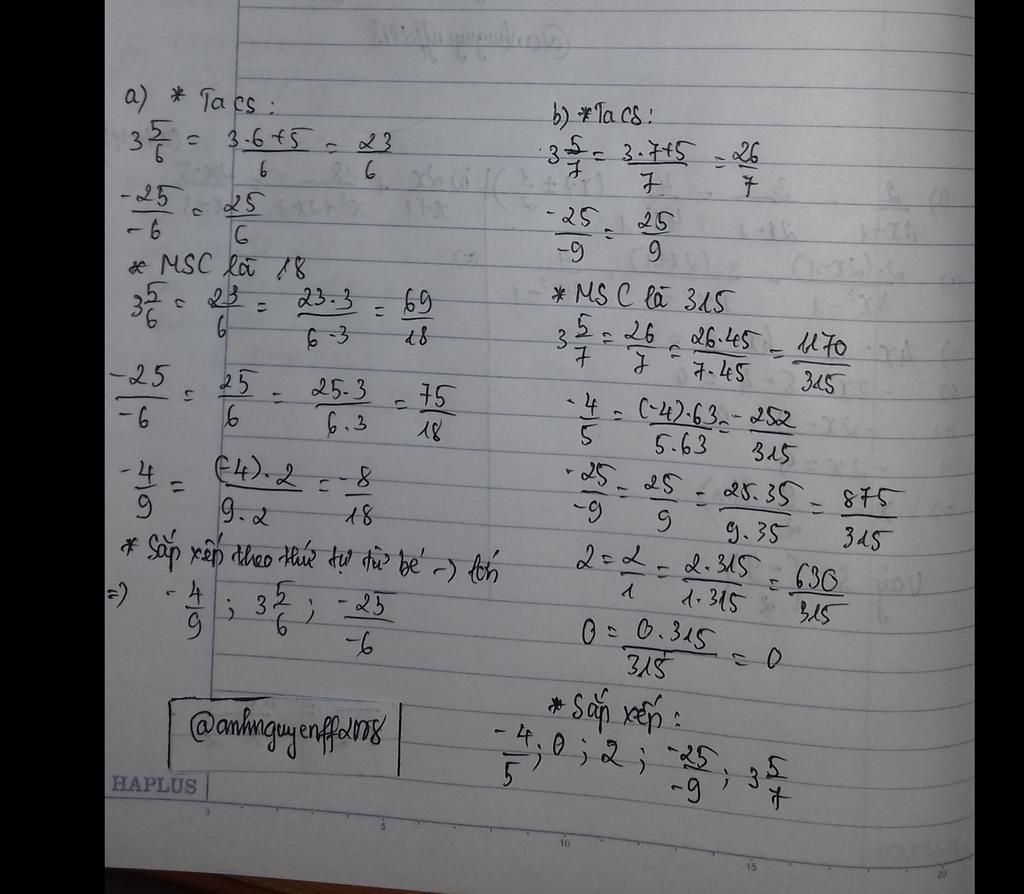 a) * Ta cs:
3 5/6 = (3.6+5)/6 = 23/6
-25/-6 = 25/6
* MSC là 18
3 5/6 = 23/6 = (23.3)/(6.3) = 69/18
-25/-6 = 25/6 = (25.3)/(6.3) = 75/18
-4/9 = ((-4).2)/(9.2) = -8/18
* Sắp xếp theo thứ tự từ bé -> lớn
=) -4/9 ; 3 5/6 ; -25/-6
@anhnguyenff2008
HAPLUS
b) * Ta cs:
3 5/7 = (3.7+5)/7 = 26/7
-25/-9 = 25/9
* MSC là 315
3 5/7 = 26/7 = (26.45)/(7.45) = 1170/315
-4/5 = ((-4).63)/(5.63) = -252/315
-25/-9 = 25/9 = (25.35)/(9.35) = 875/315
2 = 2/1 = (2.315)/(1.315) = 630/315
0 = (0.315)/315 = 0
* Sắp xếp:
-4/5 ; 0 ; 2 ; -25/-9 ; 3 5/7
0 5 10 15 20